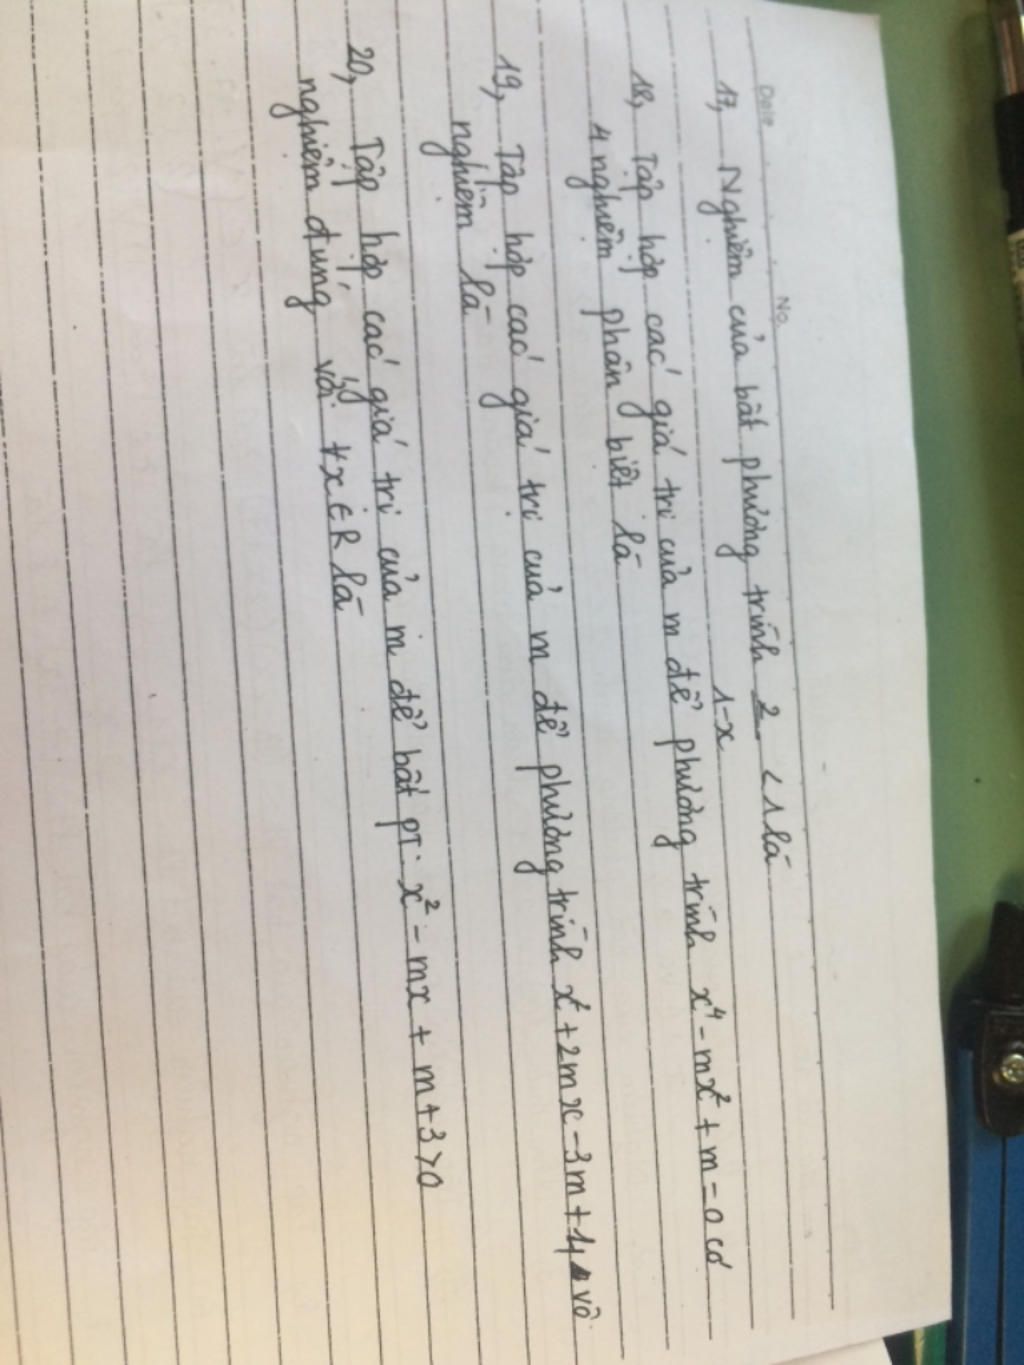 Date No.
17, Nghiệm của bất phương trình 2/1-x < 1 là
18, Tập hợp các giá trị của m để phương trình x⁴ - mx² + m = 0 có
4 nghiệm phân biệt là
19, Tập hợp các giá trị của m để phương trình x² + 2mx - 3m + 4 vô
nghiệm là
20, Tập hợp các giá trị của m để bất pT: x² - mx + m + 3 > 0
nghiệm đúng với ∀x ∈ R là